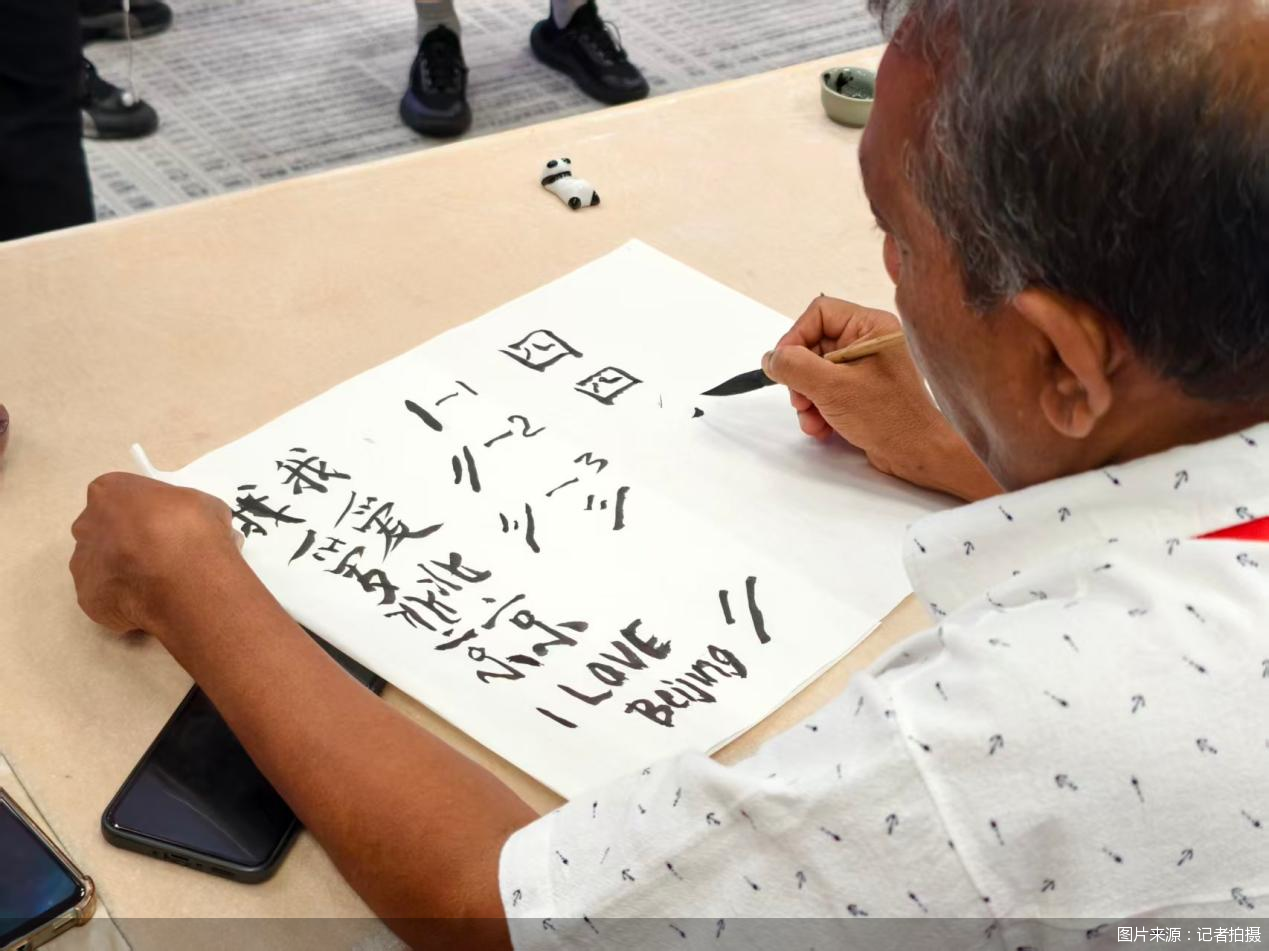 四
四
一-1
二-2
三-3
三
我爱北京
我爱北京
I LOVE
Beijing
二
图片来源：记者拍摄